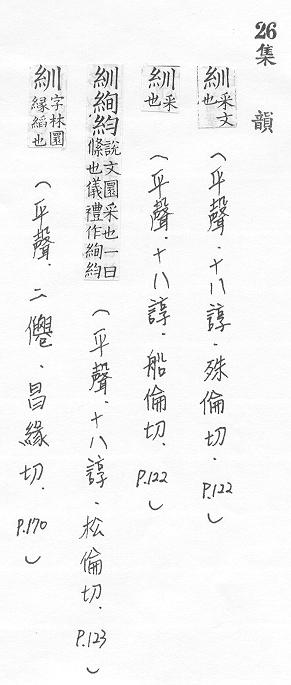 26 集韻
紃 采文也 （平聲．十八諄．殊倫切．P.122）
紃 采也 （平聲．十八諄．船倫切．P.122）
紃絢約 說文圜采也一曰絛也儀禮作絢約 （平聲．十八諄．松倫切．P.123）
紃 字林圜緣縚也 （平聲．二僊．昌緣切．P.170）